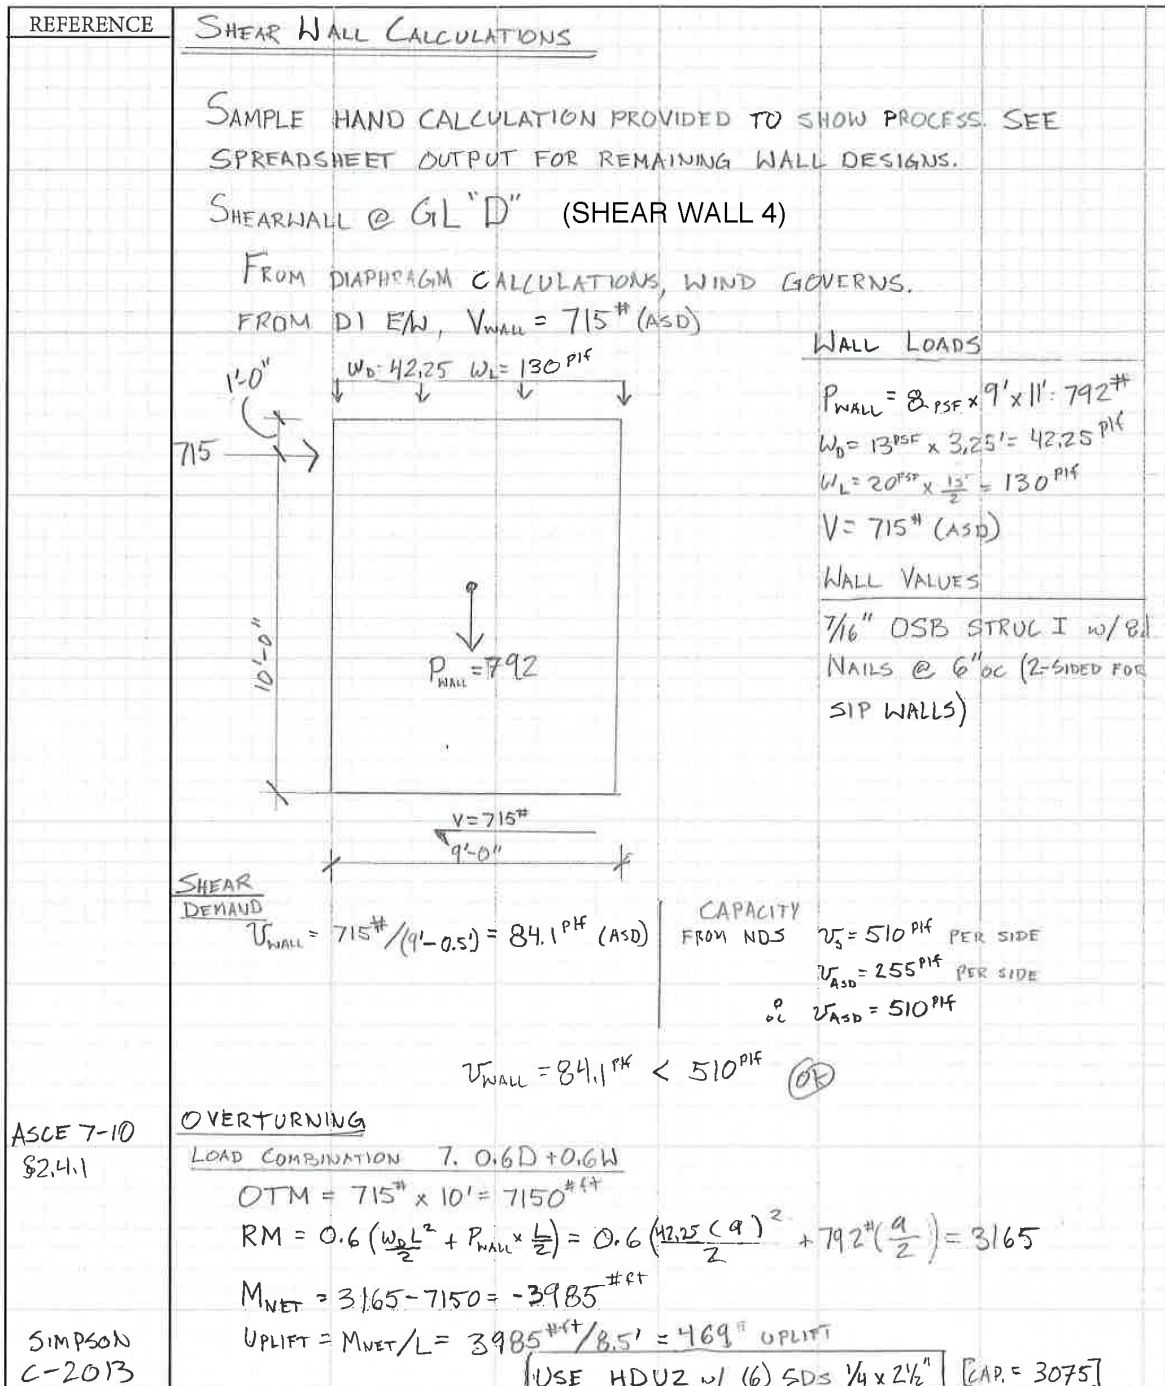 REFERENCE
SHEAR WALL CALCULATIONS
SAMPLE HAND CALCULATION PROVIDED TO SHOW PROCESS. SEE
SPREADSHEET OUTPUT FOR REMAINING WALL DESIGNS.
SHEARWALL @ GL "D" (SHEAR WALL 4)
FROM DIAPHRAGM CALCULATIONS, WIND GOVERNS.
FROM D1 E/W, VWALL = 715# (ASD)
WD= 42.25 WL= 130 plf
1'-0"
715
10'-0"
PWALL = 792
V=715#
9'-0"
WALL LOADS
PWALL = 8 PSF x 9' x 11' = 792#
WD= 13 PSF x 3.25' = 42.25 plf
WL= 20 PSF x 13'/2 = 130 plf
V= 715# (ASD)
WALL VALUES
7/16" OSB STRUC I w/ 8d
NAILS @ 6" oc (2-SIDED FOR
SIP WALLS)
SHEAR
DEMAND
VWALL = 715#/(9'-0.5') = 84.1 plf (ASD)
CAPACITY
FROM NDS vs = 510 plf PER SIDE
vASD = 255 plf PER SIDE
∴ vASD = 510 plf
vWALL = 84.1 plf < 510 plf OK
ASCE 7-10
§2.4.1
OVERTURNING
LOAD COMBINATION 7. 0.6D + 0.6W
OTM = 715# x 10' = 7150 #ft
RM = 0.6 (wDL²/2 + PWALL x L/2) = 0.6 (42.25(9)²/2 + 792#(9/2)) = 3165
MNET = 3165-7150 = -3985 #ft
SIMPSON
C-2013
UPLIFT = MNET/L = 3985 #ft/8.5' = 469# UPLIFT
USE HDU2 w/ (6) SDS 1/4 x 2½" [CAP. = 3075]